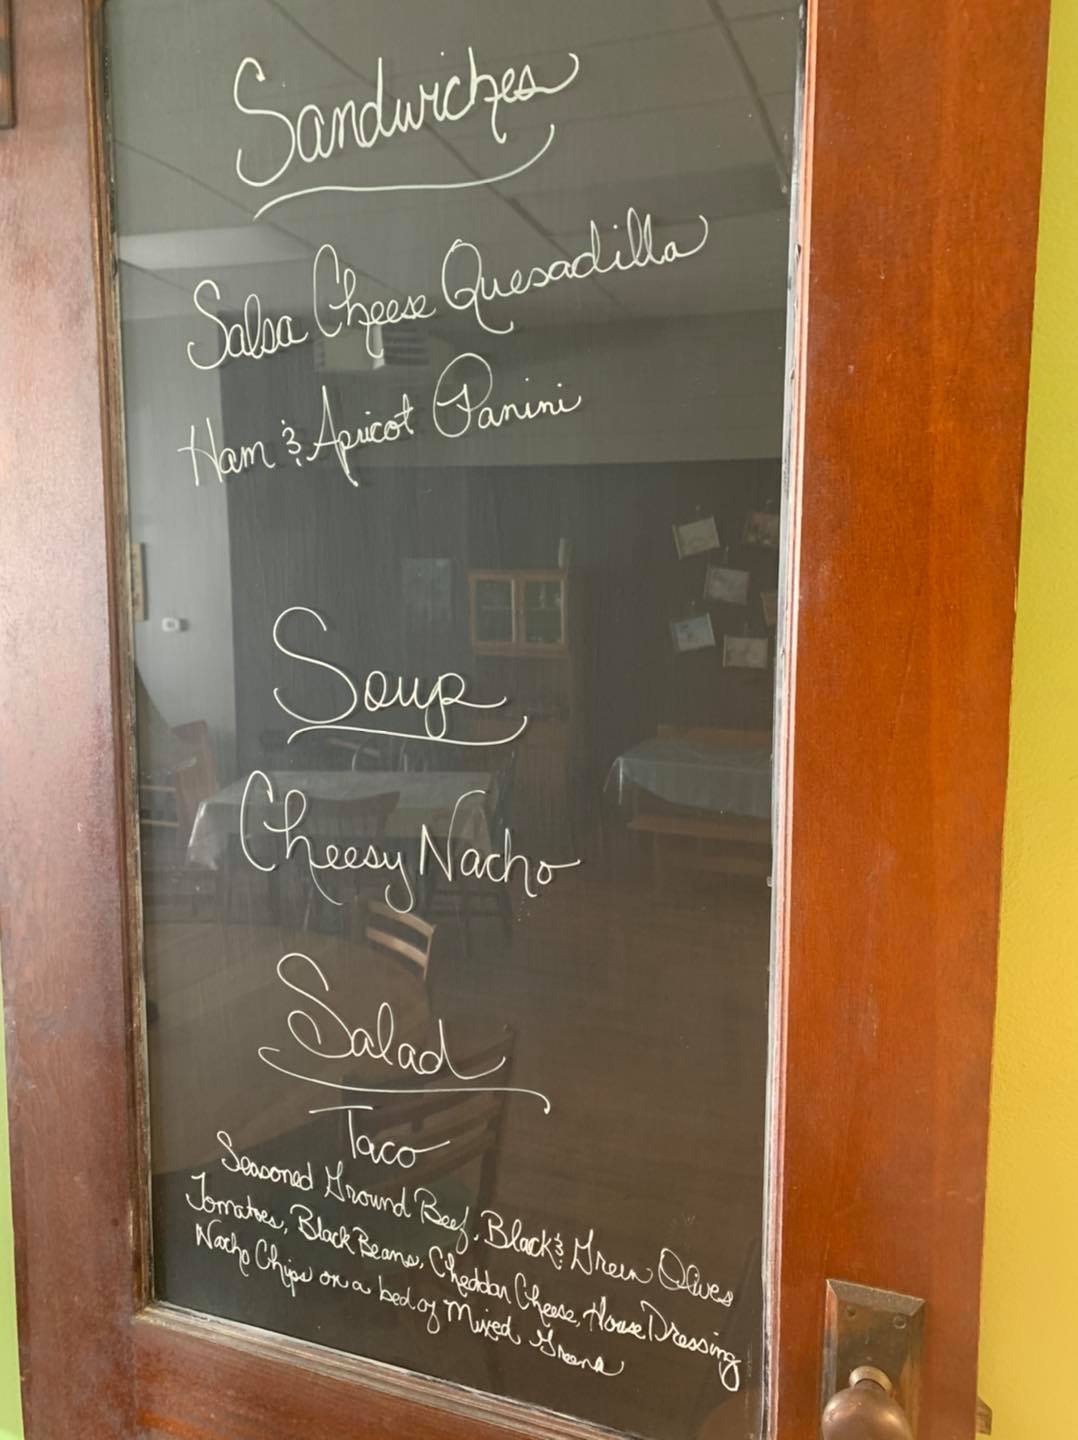 Sandwiches
Salsa Cheese Quesadilla
Ham & Apricot Panini
Soup
Cheesy Nacho
Salad
Taco
Seasoned Ground Beef, Black & Green Olives
Tomatoes, Black Beans, Cheddar Cheese, House Dressing
Nacho Chips on a bed of Mixed Greens